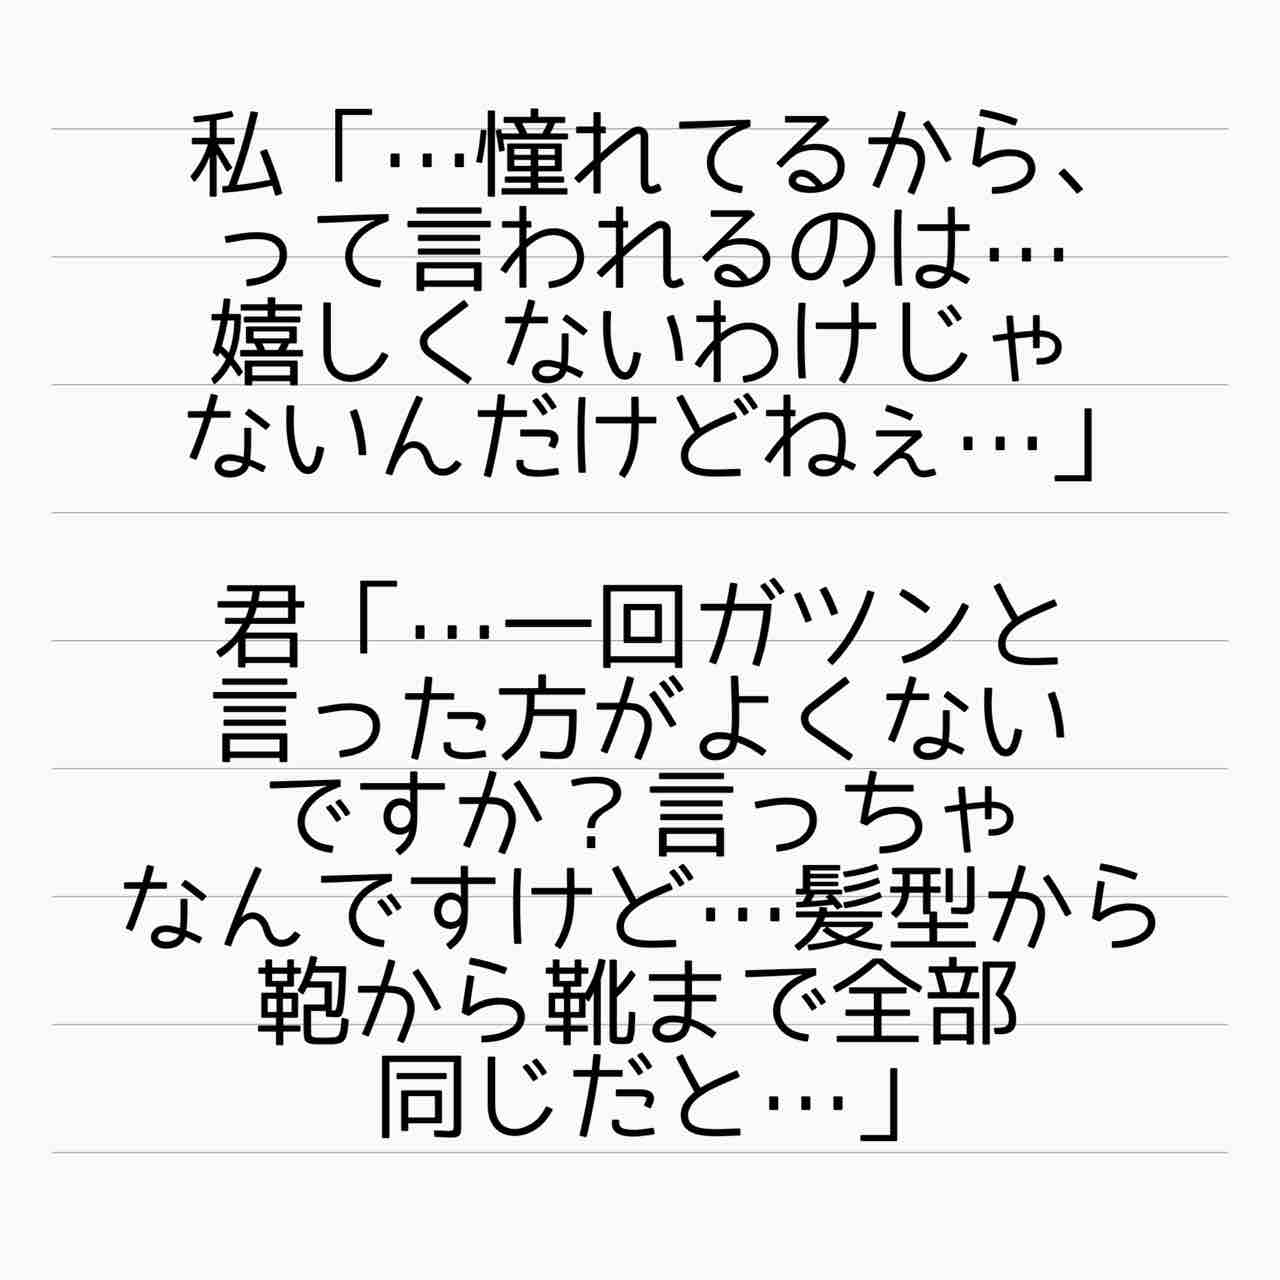 私「…憧れてるから、
って言われるのは…
嬉しくないわけじゃ
ないんだけどねぇ…」
君「…一回ガツンと
言った方がよくない
ですか？言っちゃ
なんですけど…髪型から
鞄から靴まで全部
同じだと…」